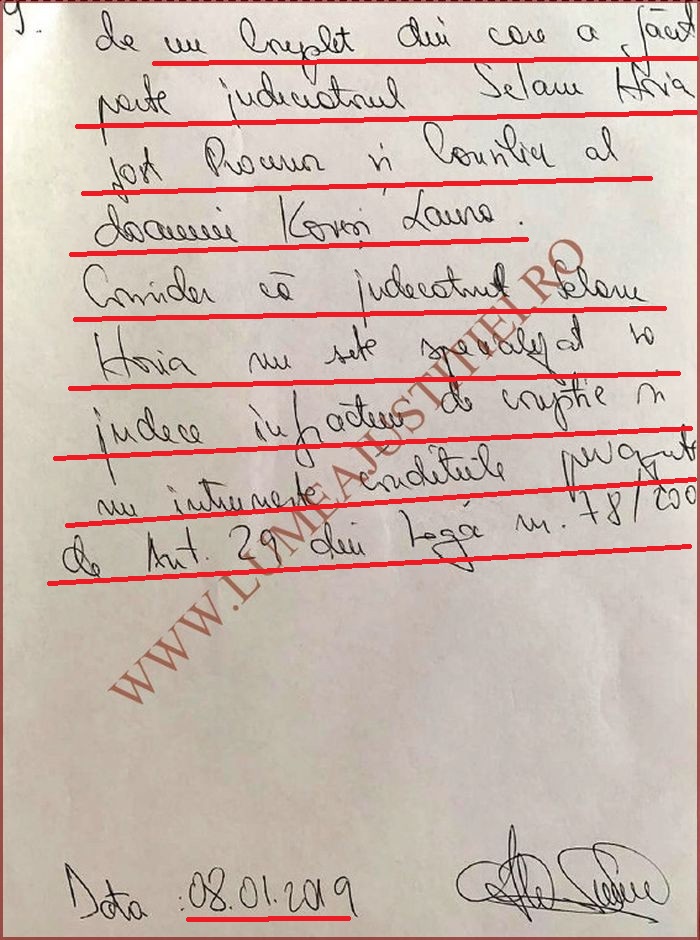 9.
de un Complet din care a făcut
parte judecatorul Selaru Horia
fost Procuror si Consilier al
doamnei Kovesi Laura.
Consider că judecatorul Selaru
Horia nu este specializat sa
judece infractiuni de corupție si
nu intruneste conditiile prevazute
de Art. 29 din Legea nr. 78/200
WWW.LUMEAJUSTITIEI.RO
Data: 08.01.2019